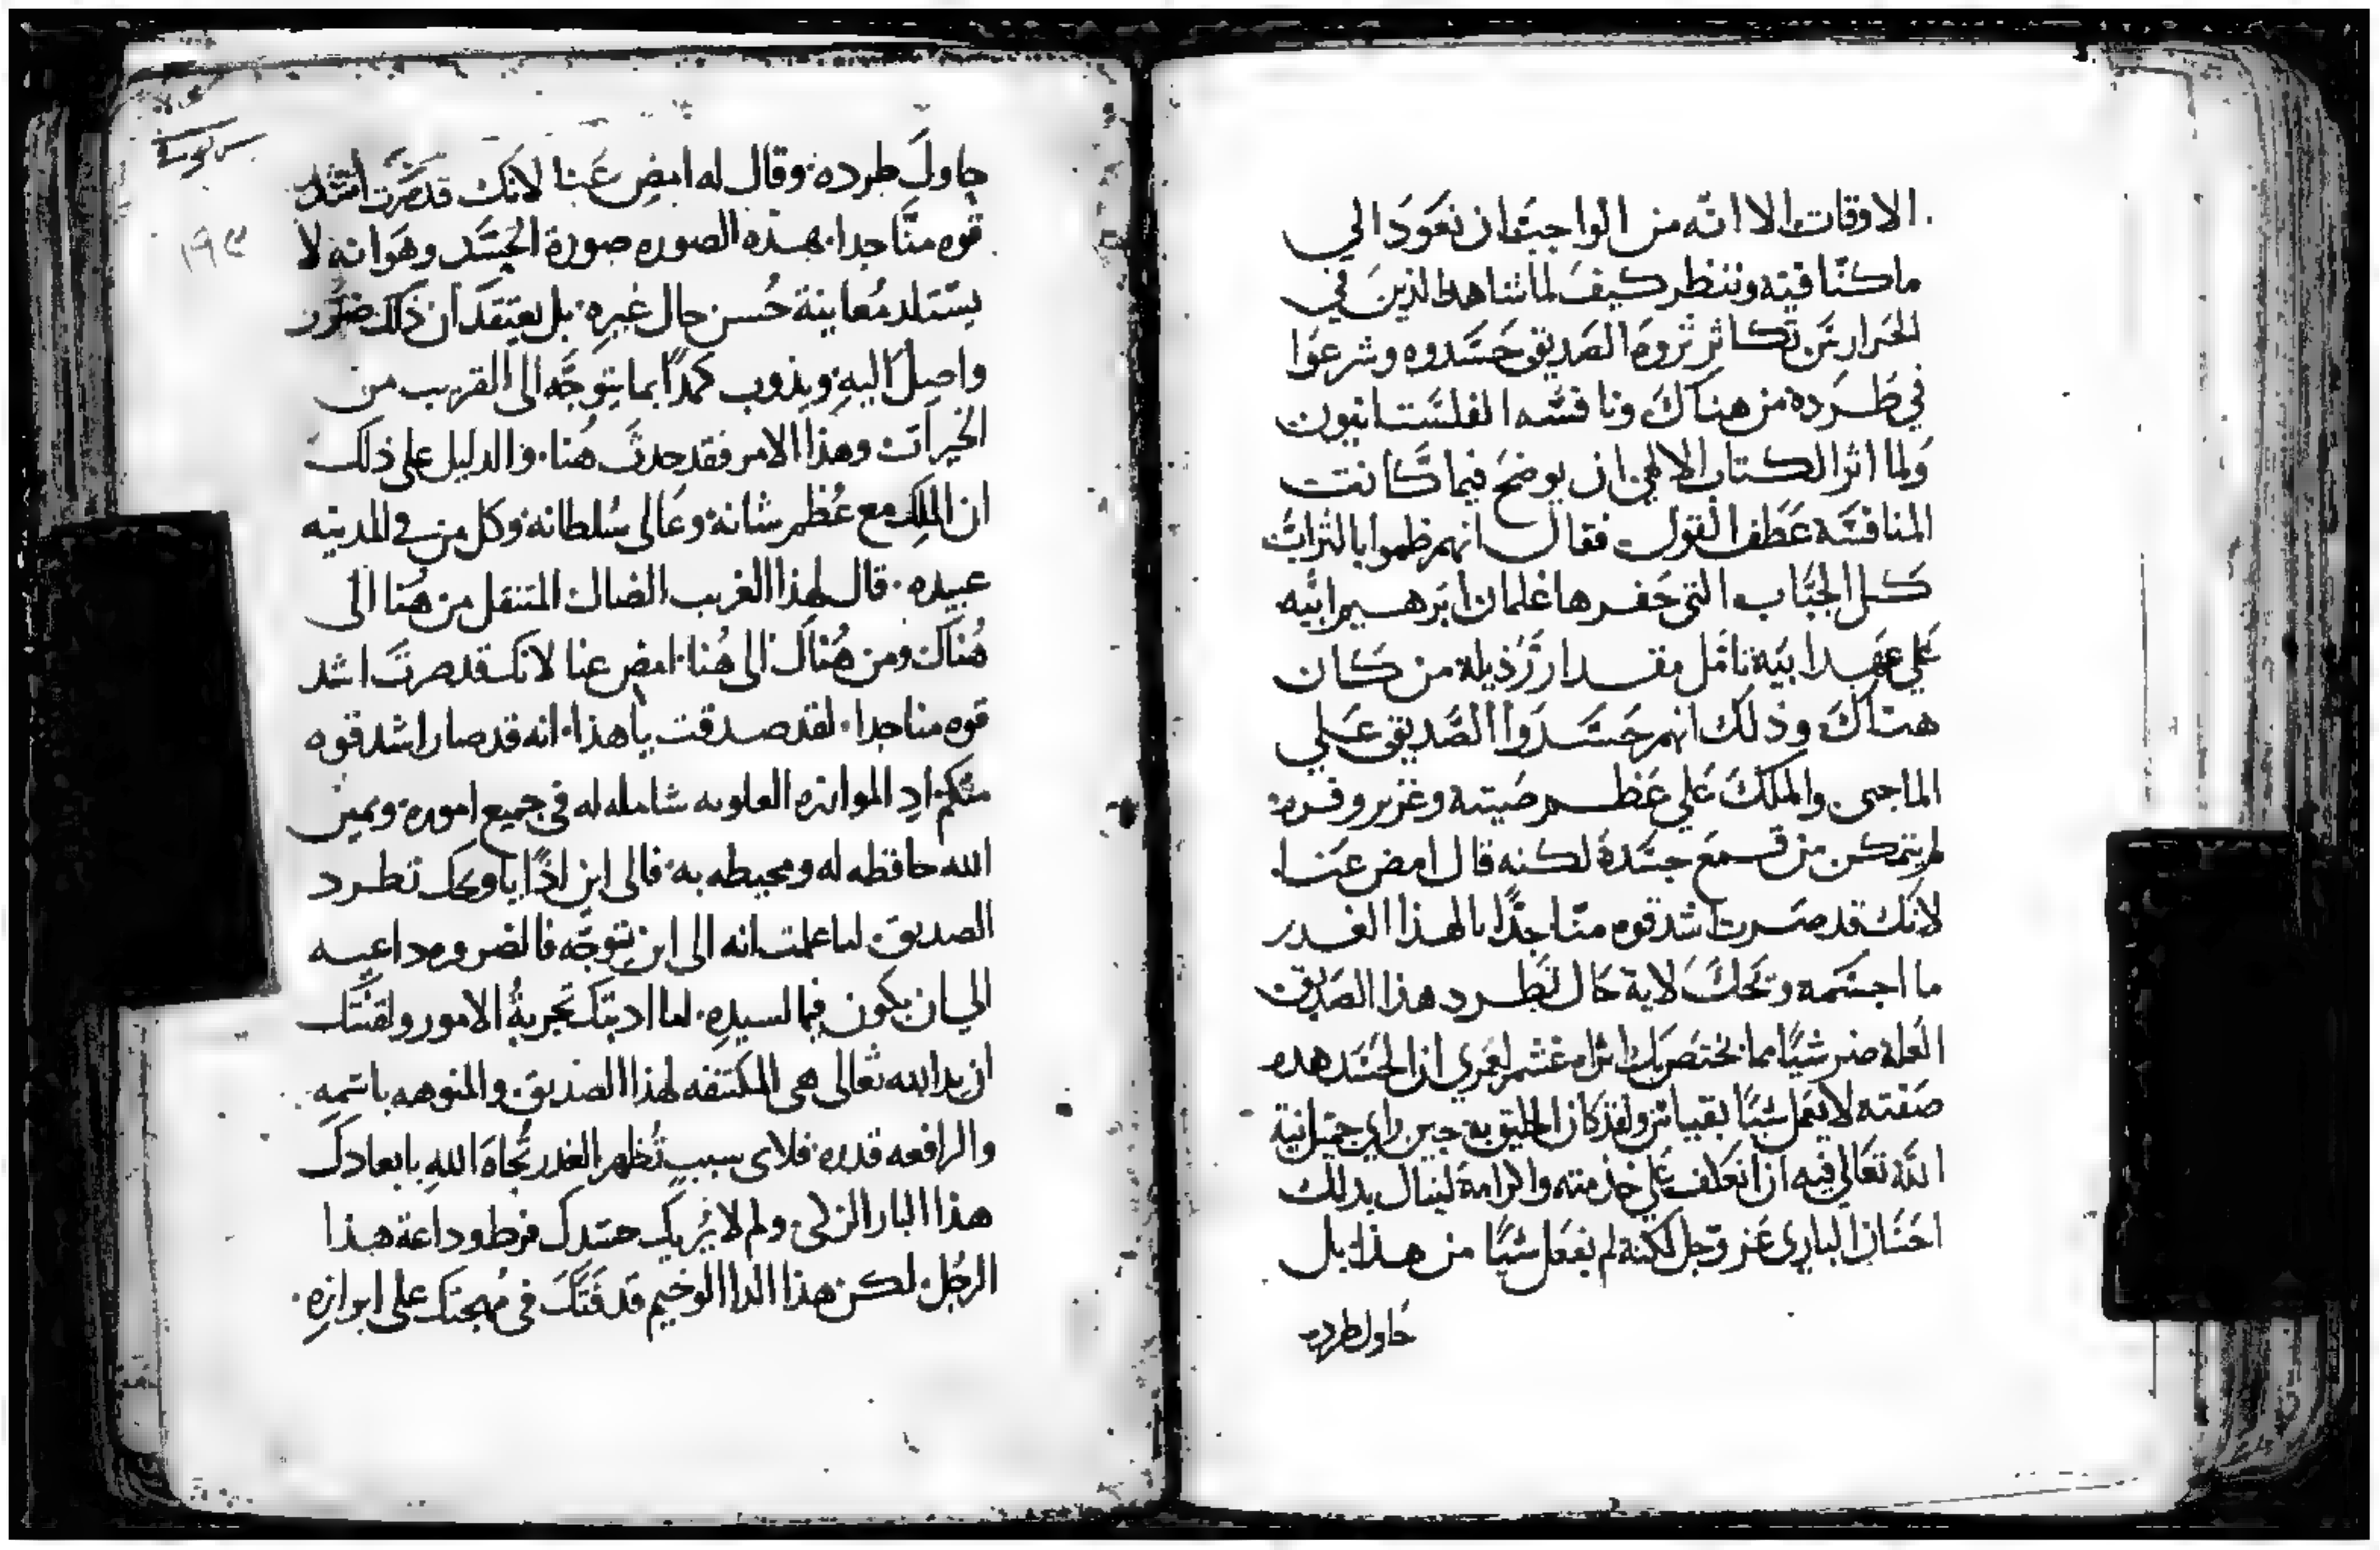 الاوقات الا انّه من الواجب ان نعَودَ الي
ما كنّا فيه وننظر كيفَ لما شاهد الذين في
الحَرارتَن تكاثر ثروة الصَديق حَسَدوه وشرعَوا
في طَرده من هناكَ ونافسَه الفلسَتانيون
وَلما اثر الكتاب الالهي ان يوضحَ فيما كَانت
المنافسَة عَطف القول فقال انهم طموا بالترابُ
كل الجبَاب التي حَفرها غلمان ابَرهيم ابيه
عَلي عهَد ابيَه تامَل مقدار رَذيلة من كَان
هنَاكَ وذلك انهم حَسَدَوا الصَديق عَلي
الما حتى والملكَ عَلي عَظم صَيته وغزير وفره
لم يتمكن من قمعَ حسَدهُ لكنه قال امض عَنا
لانك قد صَرت اشد قوه منّا جدًا يا لهذا الغدر
ما اجسَمه ويَحكَ لاية حَال تطرد هذا الصَديق
العله ضر شيًا مما يختصَ بك اتراه غشم لعَمري ان الحسَد هذه
صَفته لا يعَمل شيًا بقياس ولقد كان الاليق به حين راي حمَيل نية
اللَه تعَالي فيه ان انعَكف عَلي خدمته واكرامة لينال بذلك
احسَان الباري عَز وجل لكنه لم يفعَل شيًا من هذا بل
حَاول طرده
حاولَ طرده وقال له امضِ عَنا لانَك قد صَرت اشد
قوه منَّا جدا بهذه الصوره صورة الحَسَد وهَو انه لا
يستلد مُعاينة حُسن حال غيرِه بل يعتقد ان ذلك ضرر
واصلٌ اليهِ ويذوب كمدًا بما يتوجَّه الى القريب من
الخيرات وهذا الامر فقد حدثَ هُنا والدليل على ذلك
ان الملِك مع عُظم شانه وعَالى سُلطانه وكل من في المدينه
عبيده قال لهذا الغريب الضال المتنقل من هُنا الى
هُناك ومن هُناك الى هُنا امض عنا لانك قد صرتَ اشد
قوه منا جدا لقد صدقت يا هذا انه قد صار اشد قوه
منكم اد الموازره العلويه شامله له في جميع اموره ويمين
الله حافظه له ومحيطه به فالى اين اذًا يا ويحك تطرد
الصديق اما علمت انه الى اين يتوجَّه فالضروره داعيه
الي ان يكون فيما لسيدِه اما ادبتك تجربةُ الامور ولقنتَك
ان يد الله تعالى هى المكتنفه لهذا الصديق والمنوهه باسَمهِ
والرافعه قدره فلاى سبب تُظهر الغدر تُجاهَ اللهِ بابعادك
هذا البار الزكى ولم لا يُريك حسَدك فرط وداعة هذا
الرجُل لكن هذا الدا الوخيم قد فَتَكَ في مُهجتك على ابرازهِ
١٩٣